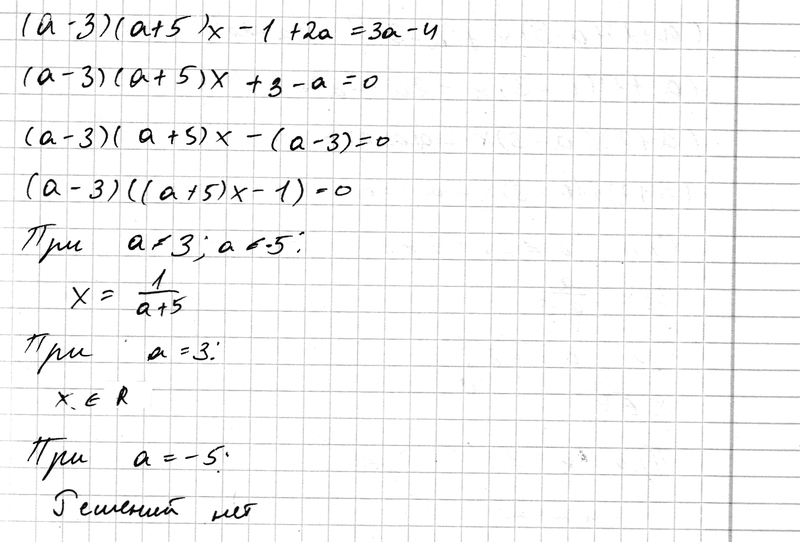 (a-3)(a+5)x - 1 + 2a = 3a - 4
(a-3)(a+5)x + 3 - a = 0
(a-3)(a+5)x - (a-3) = 0
(a-3)((a+5)x - 1) = 0
При a ≠ 3; a ≠ -5:
x = 1/(a+5)
При a = 3:
x ∈ R
При a = -5:
Решений нет